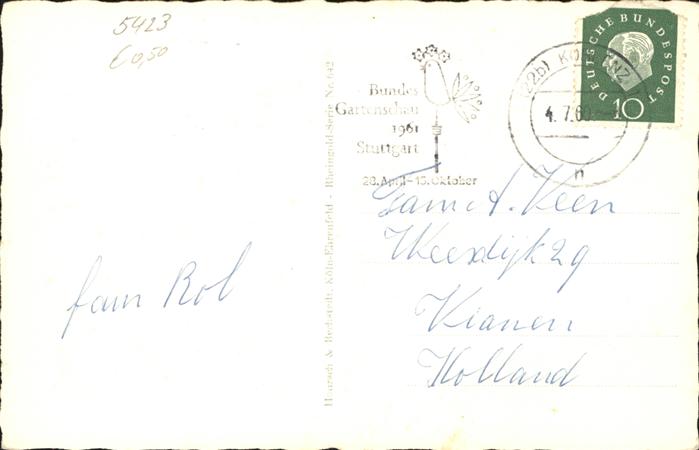 5423
€0,50
Bundes
Gartenschau
1961
Stuttgart
28. April-15. Oktober
(22b) KOBLENZ
4. 7. 60
n
DEUTSCHE BUNDESPOST
10
Fam A. Keen
29
Vianen
Holland
fam Rol
& Köln-Ehrenfeld - Rheingold-Serie Nr. 642